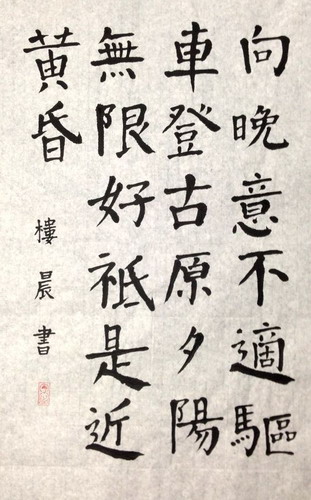 向晚意不適驅
車登古原夕陽
無限好祗是近
黄昏
樓晨書